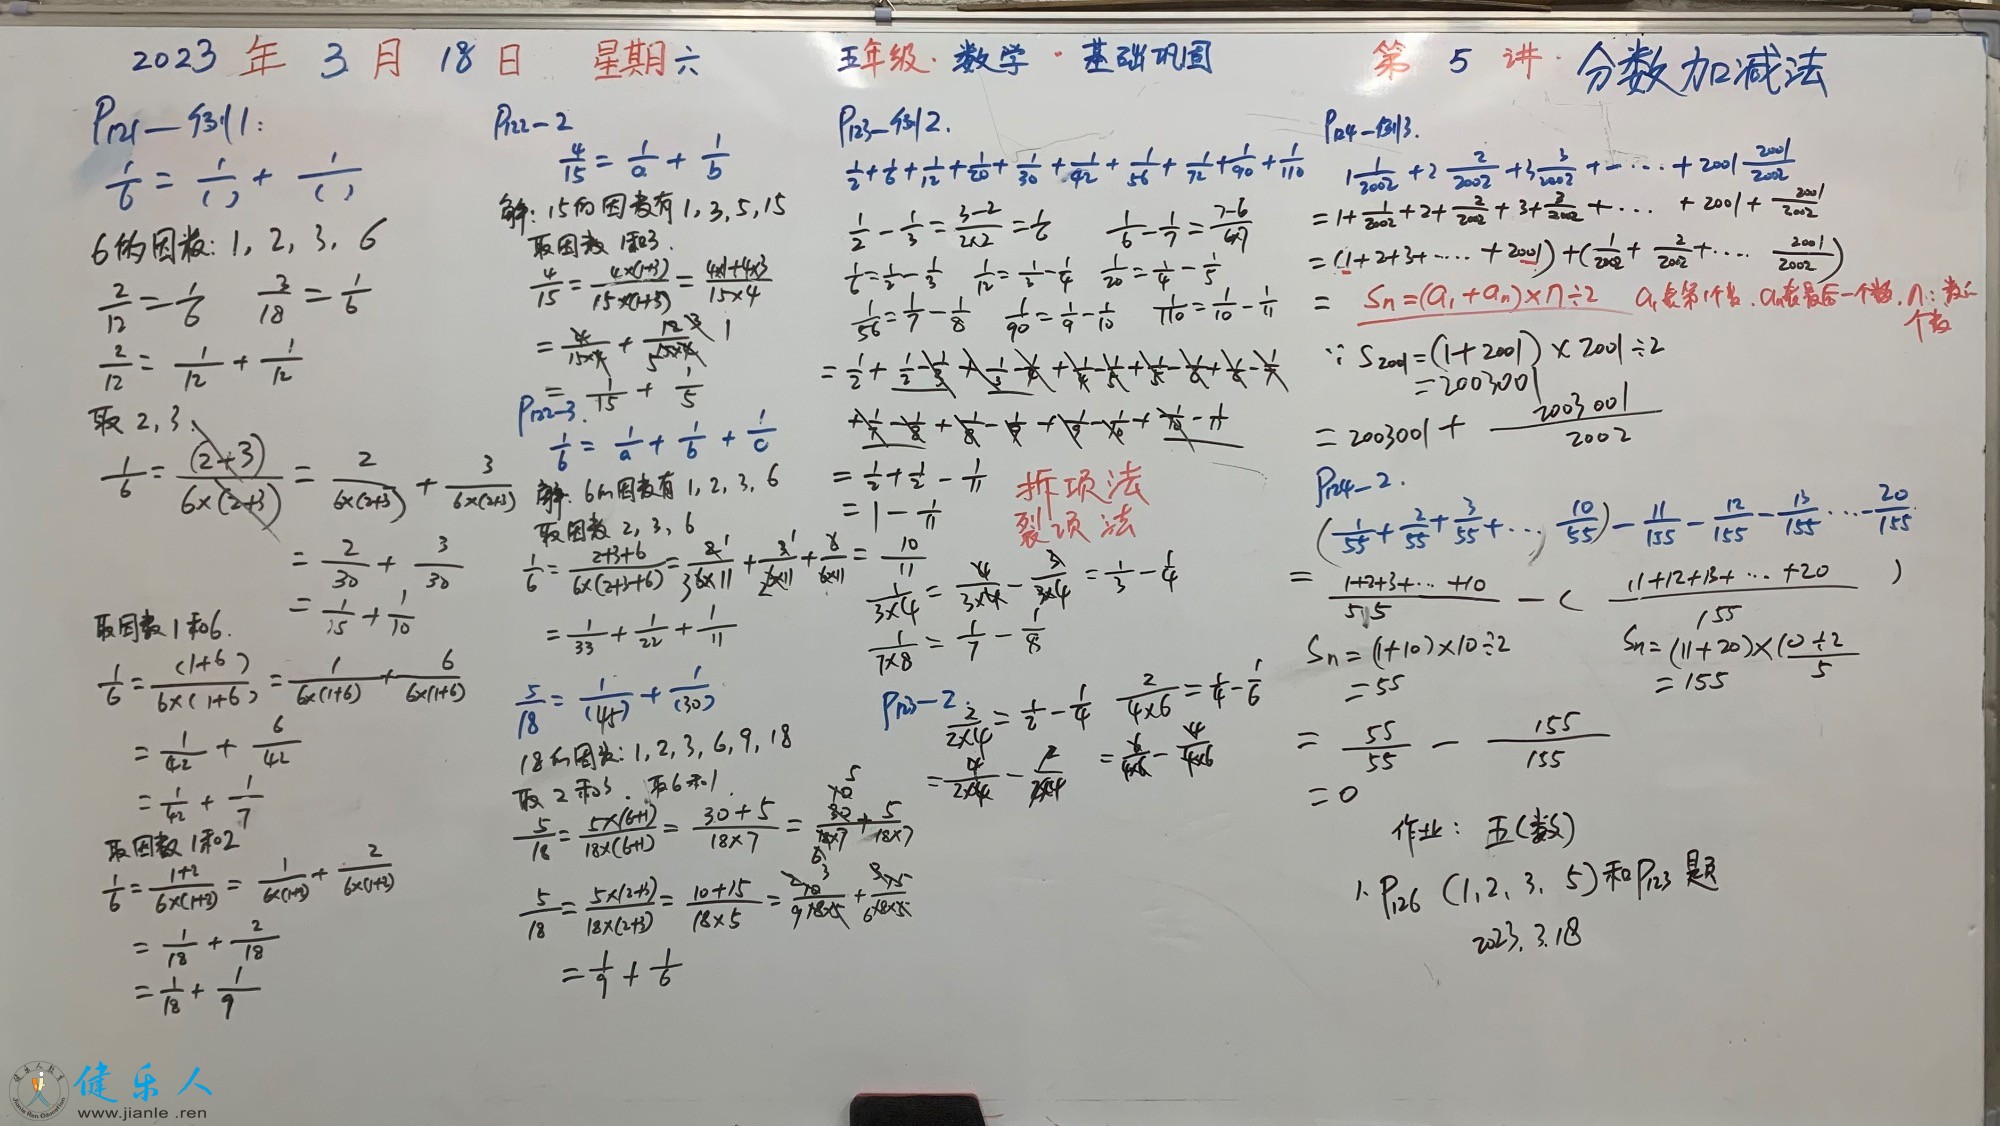 2023 年 3 月 18 日 星期六 五年级·数学·基础巩固 第 5 讲·分数加减法
P121—例1:
1/6 = 1/( ) + 1/( )
6的因数: 1, 2, 3, 6
2/12 = 1/6 3/18 = 1/6
2/12 = 1/12 + 1/12
取 2, 3、
1/6 = (2+3)/6×(2+3) = 2/6×(2+3) + 3/6×(2+3)
= 2/30 + 3/30
= 1/15 + 1/10
取因数 1和6.
1/6 = (1+6)/6×(1+6) = 1/6×(1+6) + 6/6×(1+6)
= 1/42 + 6/42
= 1/42 + 1/7
取因数 1和2
1/6 = 1+2/6×(1+2) = 1/6×(1+2) + 2/6×(1+2)
= 1/18 + 2/18
= 1/18 + 1/9
P122—2
4/15 = 1/a + 1/b
解: 15的因数有 1, 3, 5, 15
取因数 1和3.
4/15 = 4×(1+3)/15×(1+3) = 4×1+4×3/15×4
= 4/15×4 + 12/15×4
= 1/15 + 1/5
P122—3.
1/6 = 1/a + 1/b + 1/c
解: 6的因数有 1, 2, 3, 6
取因数 2, 3, 6
1/6 = 2+3+6/6×(2+3+6) = 2/6×11 + 3/6×11 + 6/6×11
= 1/33 + 1/22 + 1/11
5/18 = 1/(45) + 1/(30)
18的因数: 1, 2, 3, 6, 9, 18
取 2和3. 取6和1.
5/18 = 5×(6+1)/18×(6+1) = 30+5/18×7 = 30/18×7 + 5/18×7
5/18 = 5×(2+3)/18×(2+3) = 10+15/18×5 = 10/18×5 + 15/18×5
= 1/9 + 1/6
P123—例2.
1/2+1/6+1/12+1/20+1/30+1/42+1/56+1/72+1/90+1/110
1/2 - 1/3 = 3-2/2×2 = 1/6 1/6 - 1/7 = 7-6/6×7
1/6 = 1/2 - 1/3 1/12 = 1/3 - 1/4 1/20 = 1/4 - 1/5
1/56 = 1/7 - 1/8 1/90 = 1/9 - 1/10 1/110 = 1/10 - 1/11
= 1/2 + 1/2 - 1/3 + 1/3 - 1/4 + 1/4 - 1/5 + 1/5 - 1/6 + 1/6 - 1/7
+ 1/7 - 1/8 + 1/8 - 1/9 + 1/9 - 1/10 + 1/10 - 1/11
= 1/2 + 1/2 - 1/11
= 1 - 1/11
= 10/11
拆项法
裂项法
1/3×4 = 4/3×4 - 3/3×4 = 1/3 - 1/4
1/7×8 = 1/7 - 1/8
P123—2:
2/2×4 = 1/2 - 1/4 2/4×6 = 1/4 - 1/6
= 4/2×4 - 2/2×4 = 6/4×6 - 4/4×6
P124—例3.
1 1/2002 + 2 2/2002 + 3 3/2002 + ····· + 2001 2001/2002
= 1 + 1/2002 + 2 + 2/2002 + 3 + 3/2002 + ··· + 2001 + 2001/2002
= (1+2+3+····· + 2001) + (1/2002 + 2/2002 + ···· 2001/2002)
= Sn = (a1 + an) × n ÷ 2 a1是第1个数. an是最后一个数. n: 数的个数
∵ S2001 = (1+2001) × 2001 ÷ 2
= 2003001
= 2003001 + 2003001/2002
P124—2.
(1/55 + 2/55 + 3/55 + ··· , 10/55) - 11/155 - 12/155 - 13/155 ··· - 20/155
= 1+2+3+··· +10/55 - ( 11+12+13+ ··· +20/155 )
Sn = (1+10)×10÷2 Sn = (11+20)×10÷2
5
= 55 = 155
= 55/55 - 155/155
= 0
作业: 五(数)
1. P126 (1, 2, 3, 5) 和P123 题
2023. 3. 18
健乐人
www.jianle .ren